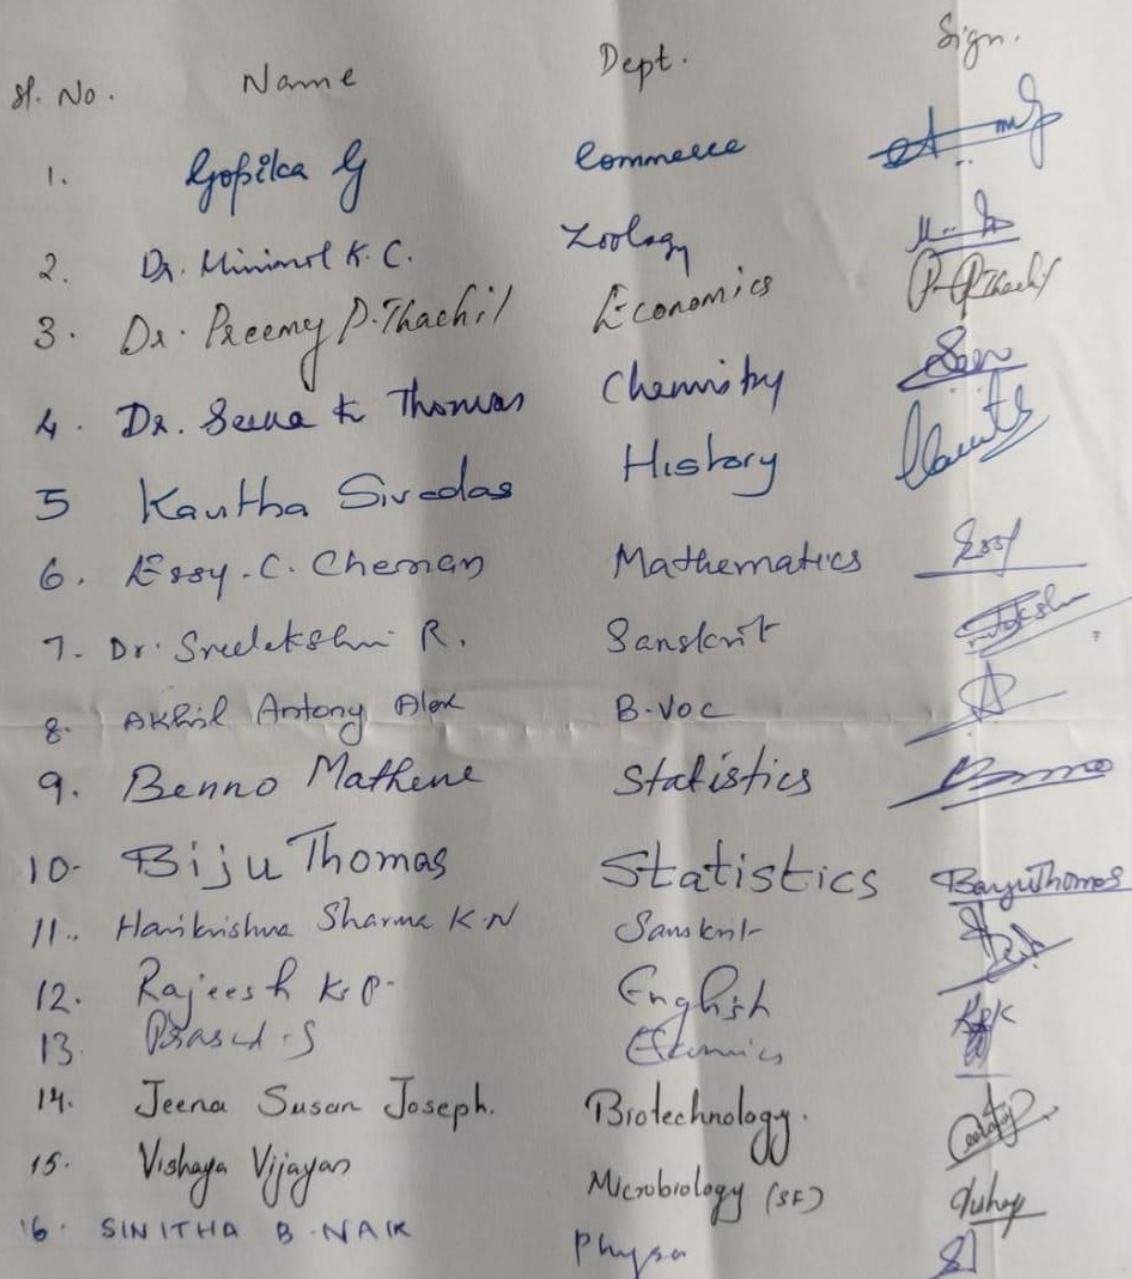 Sl. No. Name Dept. Sign.
1. Gopika G Commerce
2. Dr. Minimol K. C. Zoology
3. Dr. Preemy P. Thachil Economics P. P. Thachil
4. Dr. Seena K Thomas Chemistry
5 Kavitha Sivadas History
6. Essy. C. Cheman Mathematics Essy
7. Dr. Sreelekshmi R. Sanskrit
8. Akhil Antony Alex B.Voc
9. Benno Mathene Statistics Benno
10. Biju Thomas Statistics Thomas
11. Harikrishna Sharma K.N Sanskrit
12. Rajeesh K. P. English
13. Prasad. S
14. Jeena Susan Joseph. Biotechnology.
15. Vishaya Vijayan Microbiology (SF)
16. SINITHA B. NAIK